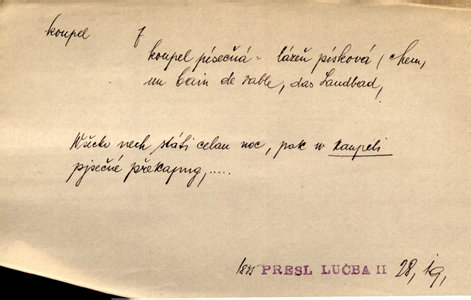 koupel f
koupel písečná = lázeň písková, chem,
un bain de sable, das Sandbad,
Wšicko nech státi celau noc, pak w kaupeli
pjsečné překapug, .....
PRESL LUČBA II 28, 19,